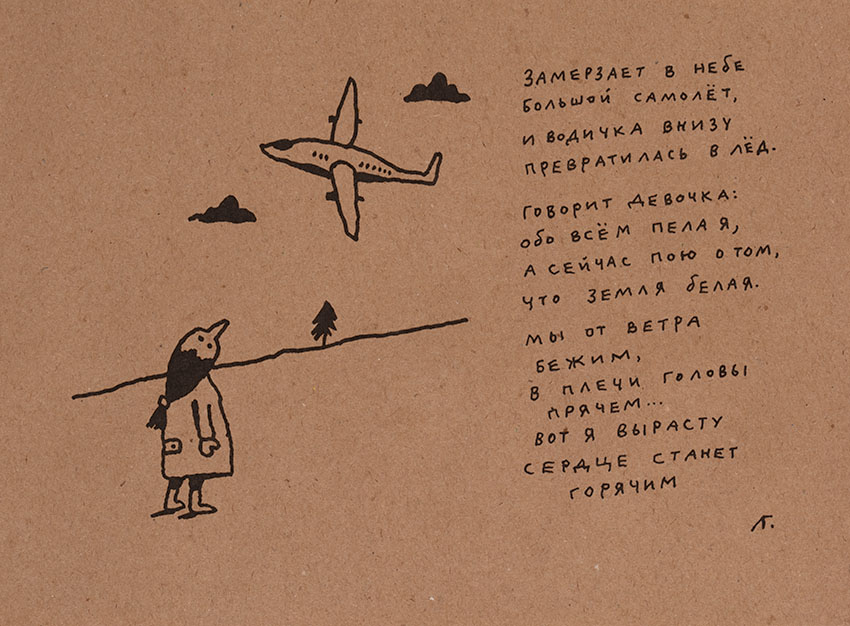 ЗАМЕРЗАЕТ В НЕБЕ
БОЛЬШОЙ САМОЛЁТ,
И ВОДИЧКА ВНИЗУ
ПРЕВРАТИЛАСЬ В ЛЁД.
ГОВОРИТ ДЕВОЧКА:
ОБО ВСЁМ ПЕЛА Я,
А СЕЙЧАС ПОЮ О ТОМ,
ЧТО ЗЕМЛЯ БЕЛАЯ.
МЫ ОТ ВЕТРА
БЕЖИМ,
В ПЛЕЧИ ГОЛОВЫ
ПРЯЧЕМ...
ВОТ Я ВЫРАСТУ
СЕРДЦЕ СТАНЕТ
ГОРЯЧИМ